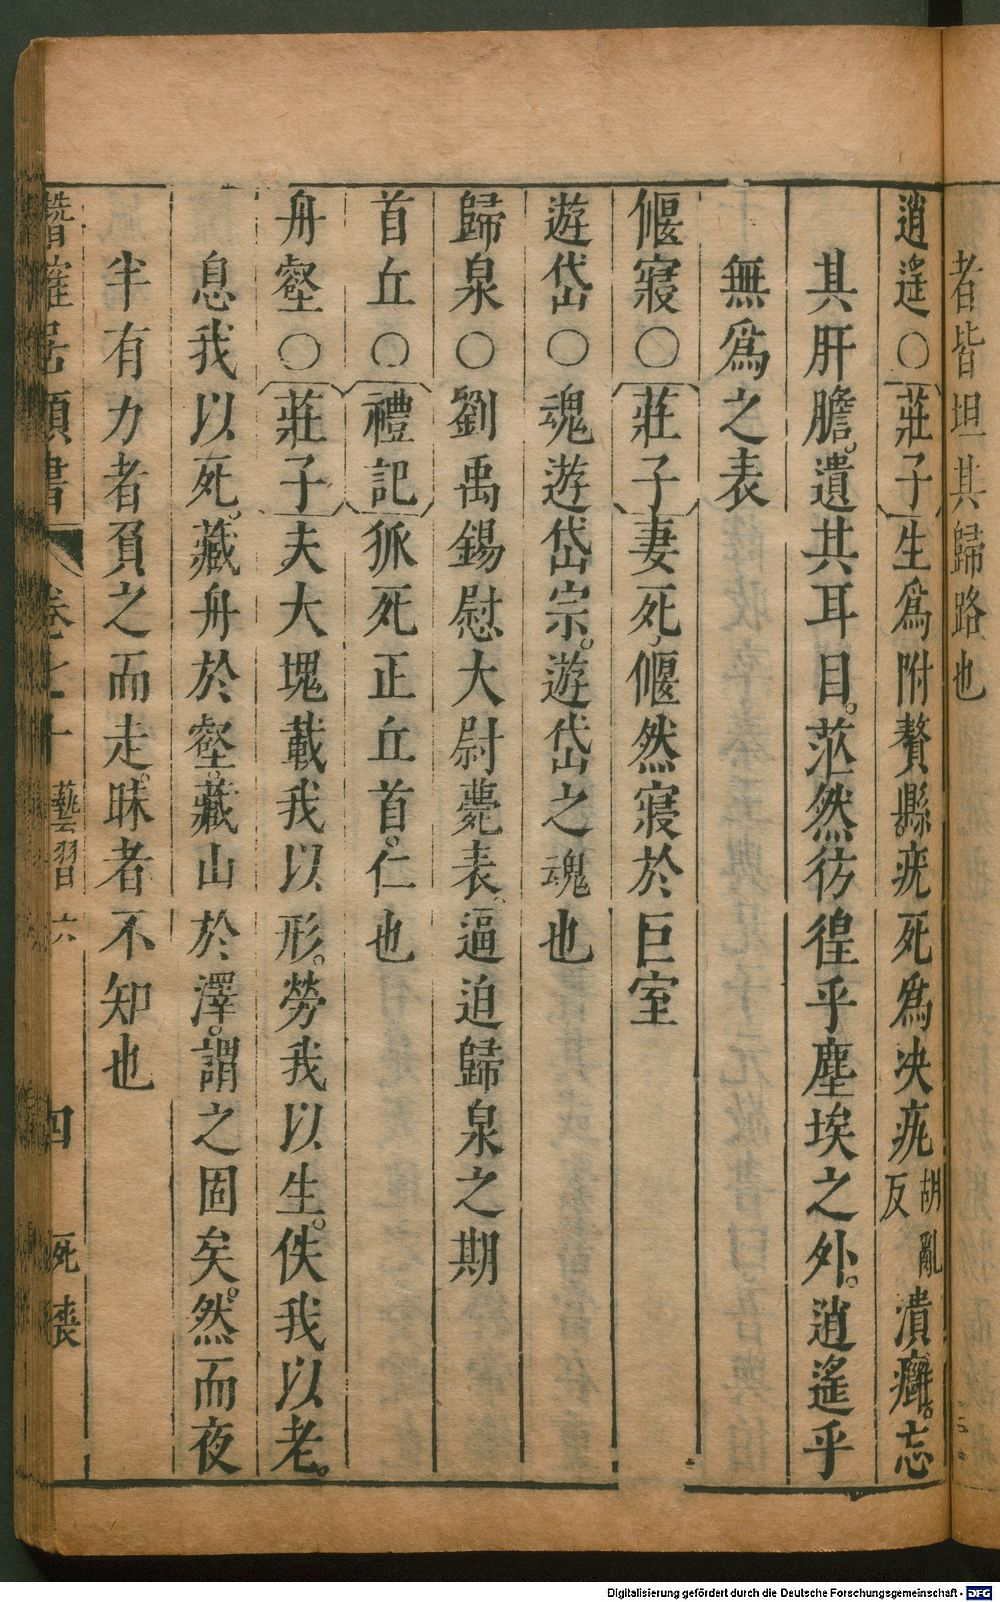 者皆坦其歸路也
逍遙○莊子生爲附贅縣疣死爲決疣胡亂反潰癰。忘
其肝膽。遺其耳目。茫然彷徨乎塵埃之外。逍遙乎
無爲之表
偃寢○莊子妻死。偃然寢於巨室
遊岱○魂遊岱宗。遊岱之魂也
歸泉○劉禹錫慰大尉薨表。逼迫歸泉之期
首丘○禮記狐死正丘首。仁也
舟壑○莊子夫大塊載我以形。勞我以生。佚我以老。
息我以死。藏舟於壑。藏山於澤。謂之固矣。然而夜
半有力者負之而走。昧者不知也
類書 卷七十 藝習六 四 死喪
Digitalisierung gefördert durch die Deutsche Forschungsgemeinschaft - DFG